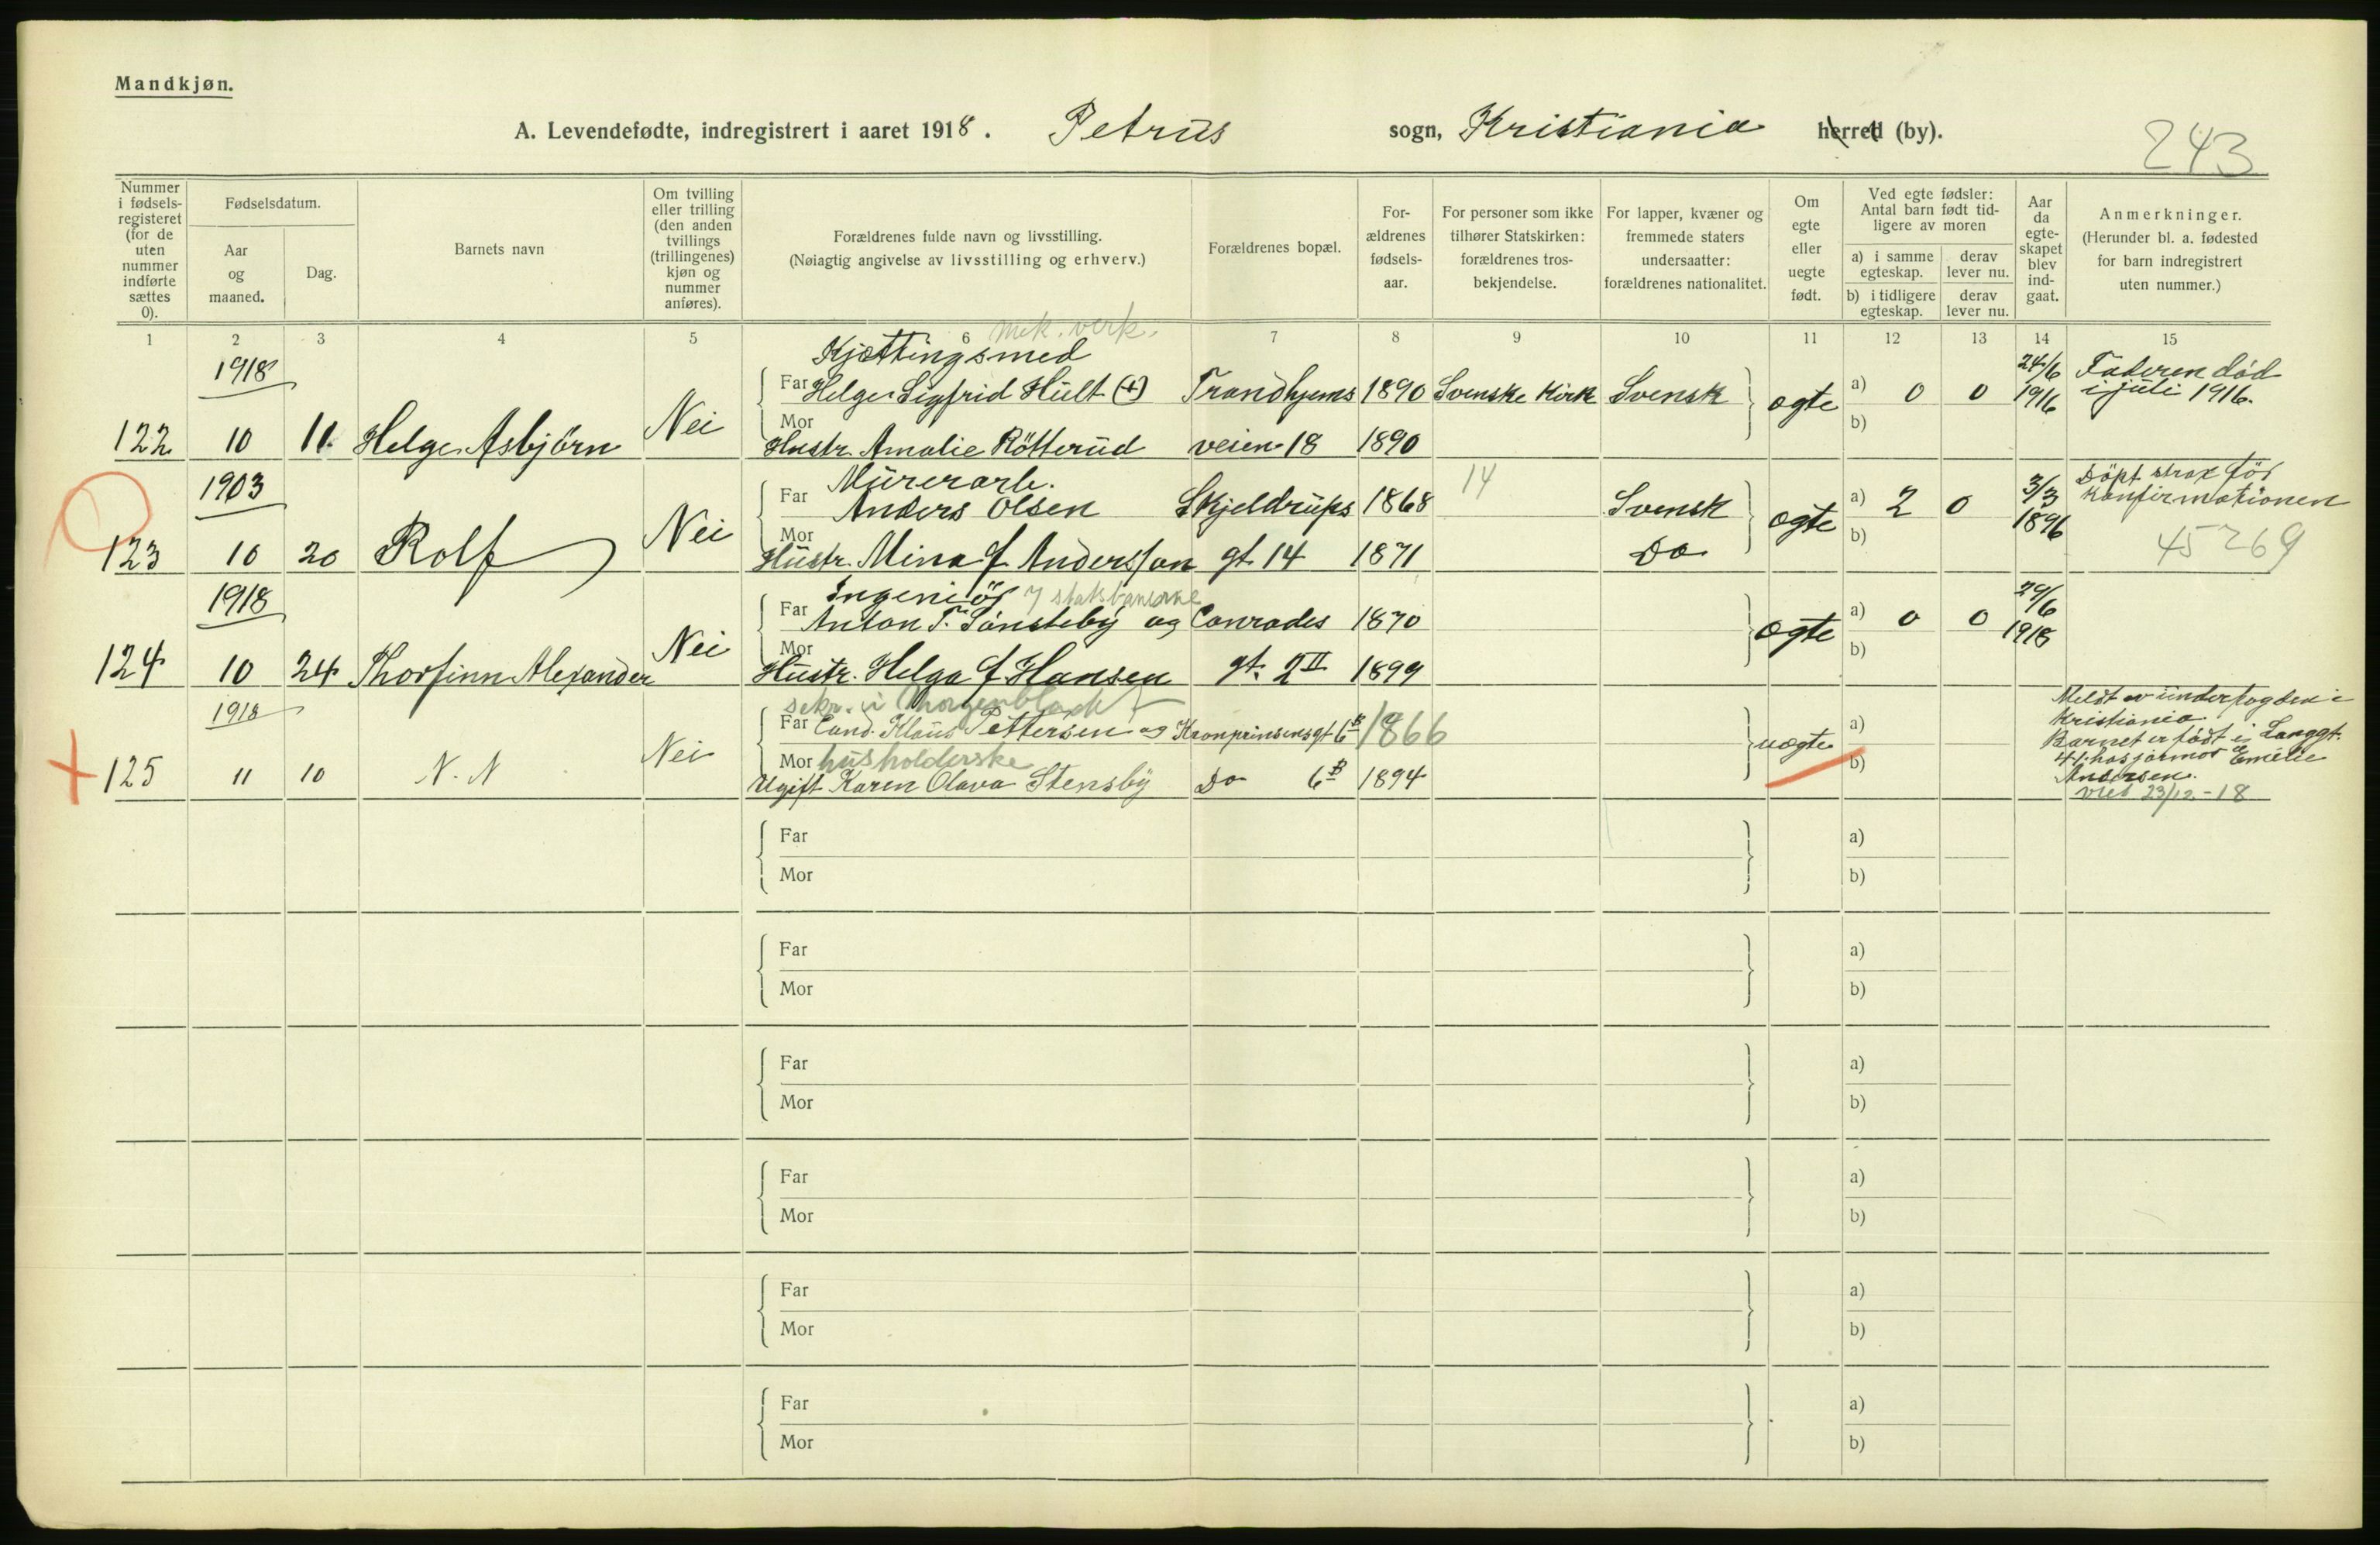 Mandkjøn.
A. Levendefødte, indregistrert i aaret 1918. Petrus sogn, Kristiania herred (by).
243
Nummer i fødsels-registeret (for de uten nummer indførte sættes 0).
Fødselsdatum.
Aar og maaned.
Dag.
Barnets navn
Om tvilling eller trilling (den anden tvillings (trillingenes) kjøn og nummer anføres).
Forældrenes fulde navn og livsstilling.
(Nøiagtig angivelse av livsstilling og erhverv.)
Forældrenes bopæl.
For-ældrenes fødsels-aar.
For personer som ikke tilhører Statskirken: forældrenes tros-bekjendelse.
For lapper, kvæner og fremmede staters undersaatter: forældrenes nationalitet.
Om egte eller uegte født.
Ved egte fødsler: Antal barn født tid-ligere av moren
a) i samme egteskap. derav lever nu.
b) i tidligere egteskap. derav lever nu.
Aar da egte-skapet blev ind-gaat.
Anmerkninger.
(Herunder bl. a. fødested for barn indregistrert uten nummer.)
1 2 3 4 5 6 7 8 9 10 11 12 13 14 15
1918 Kjættingsmed mek. verk.
Far Helge Sigfrid Hult (+) Trondhjems 1890 Svenske Kirk Svensk
122 10 11. Helge Asbjörn Nei
Mor Hustr. Amalie Rötterud veien 18 1890
ægte a) 0 0 24/6 1916 b)
Faderen död i juli 1916.
1903 Murerarb.
Far Anders Olsen Skjeldrups 1868 14 Svensk
123 10 20 Rolf Nei
Mor Hustr. Mina f. Andersson gt. 14 1871 Do
ægte a) 2 0 3/3 1896 b)
Döpt strax för konfirmationen
45269
1918 Ingeniör v statsbanerne
Far Anton T. Sönsteby og Conrades 1870
124 10 24 Thorfinn Alexander Nei
Mor Hustr. Helga f. Hansen gt. 2 II 1899
ægte a) 0 0 29/6 1918 b)
1918 sekr. i Morgenbladet
Far Cand. Klaus Pettersen og Kronprinsensgt 6B 1866
125 11 10 N. N Nei
Mor husholderske
Ugift Karen Olava Stensby Do 6B 1894
uægte a) b)
Meldt av underfogden i Kristiania
Barnet er født i Langgt.
41 hos jormor Emilie
Andersen.
23/12-18
Far a)
Mor b)
Far a)
Mor b)
Far a)
Mor b)
Far a)
Mor b)
Far a)
Mor b)
Far a)
Mor b)